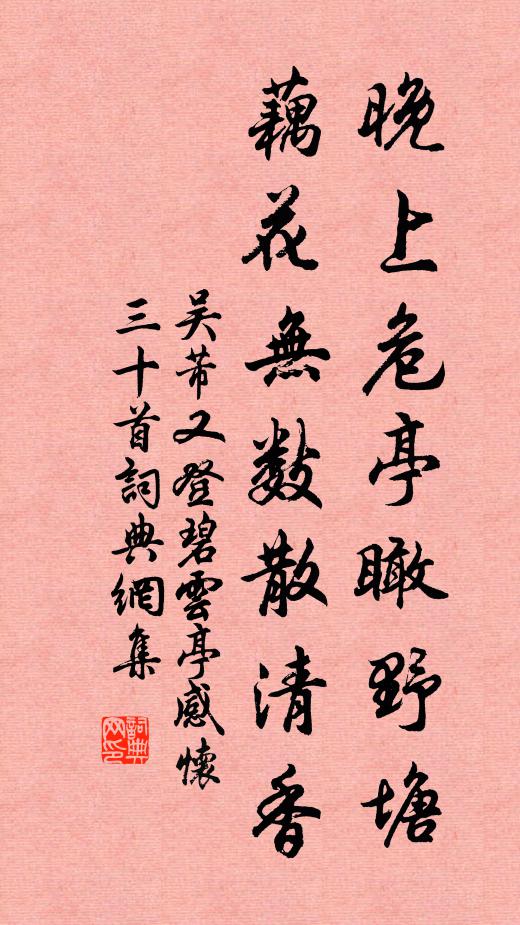 晚上危亭瞰野塘
藕花無数散清香
吴芾又登碧雲亭感懷
三十首詞典網集
詞典
网印